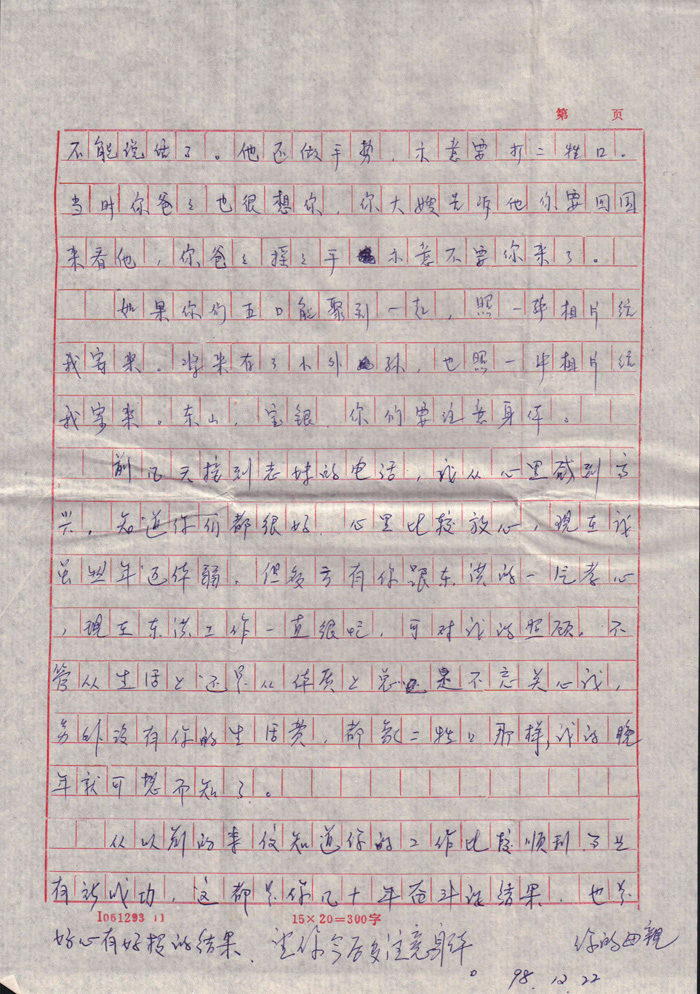 第 页
不能说话了。他还做手势,示意要打二牲口。
当时你爸々也很想你,你大嫂告诉他你要回国
来看他,你爸々摇々手示意不要你来了。
如果你们五口能聚到一起,照一张相片给
我寄来。将来有了小外孙,也照一张相片给
我寄来。东山、宝银,你们要注意身体。
前几天接到老妹的电话,我从心里感到高
兴,知道你们都很好,心里比较放心,现在我
虽然年迈体弱,但多亏有你跟东洪的一片孝心
,现在东洪工作一直很忙,可对我的照顾,不
管从生活上还是从体质上总是不忘关心我,
另外没有你的生活费,都象二牲口那样,我的晚
年就可想而知了。
从以前的来信知道你的工作比较顺利,而且
有所成功,这都是你几十年奋斗的结果,也是
好心有好报的结果,望你今后多注意身体。
你的母亲
98.12.22
I061293
15×20=300字